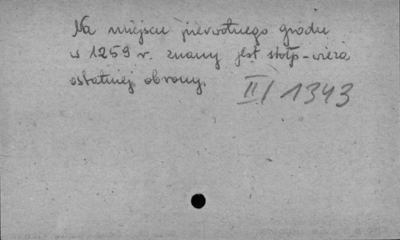 Na miejscu pierwotnego grodu
w 1259 r. znany jest stołp-wieża
ostatniej obrony.
II/1343